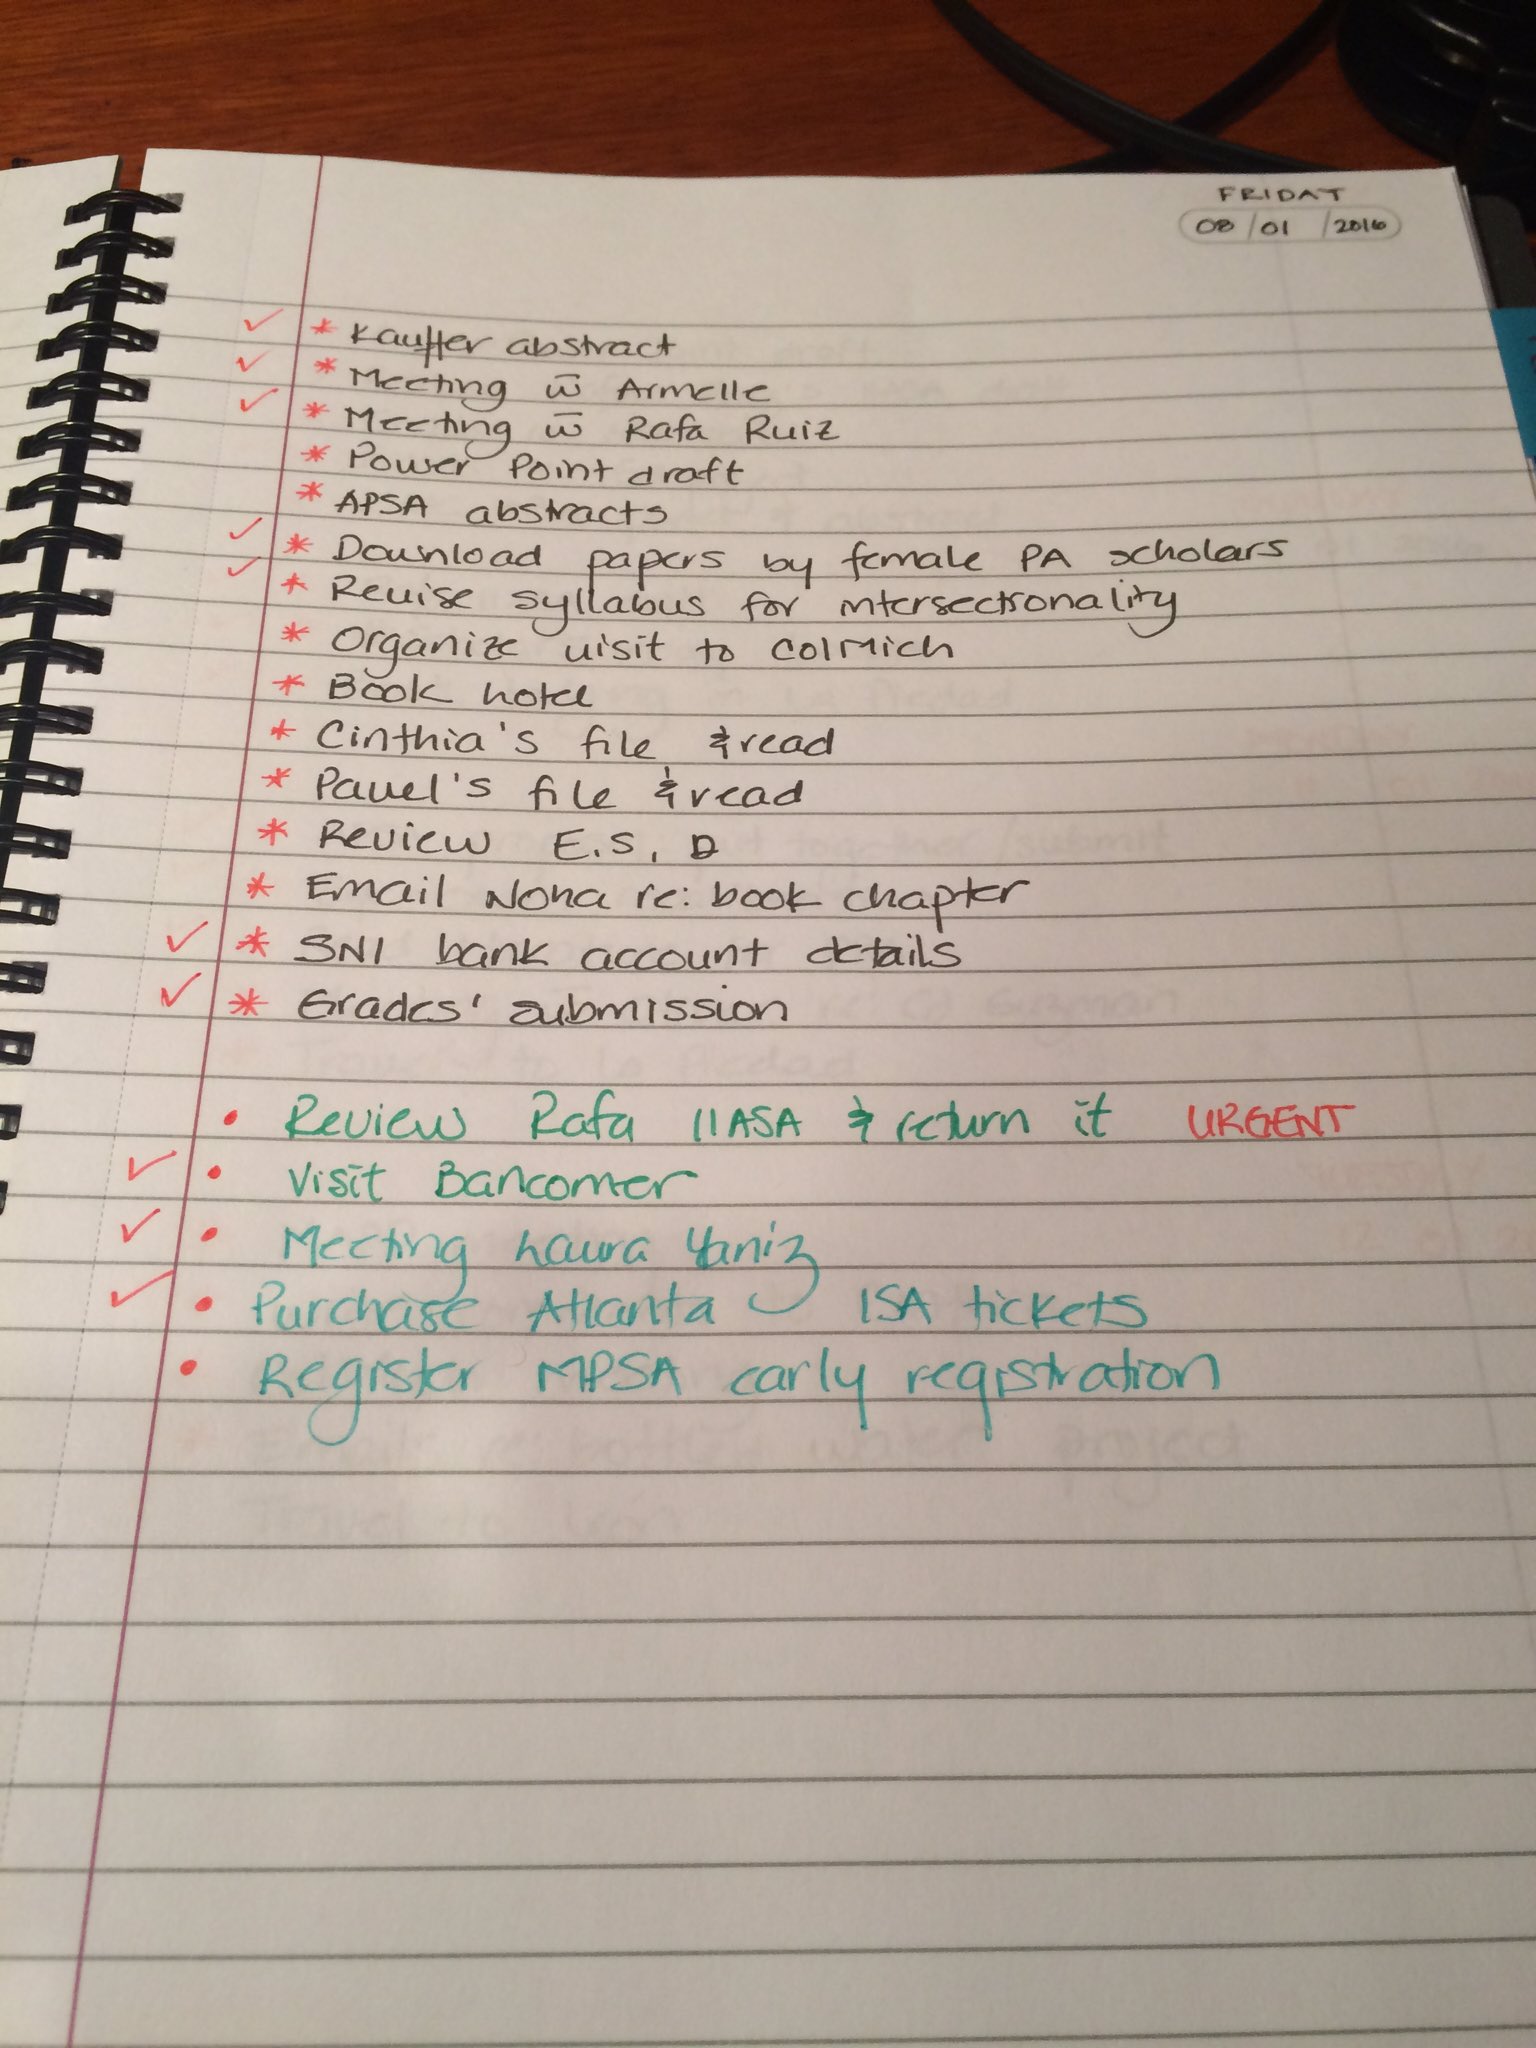 FRIDAY
08/01/2016
✓ * Kauffer abstract
✓ * Meeting w̄ Armelle
✓ * Meeting w̄ Rafa Ruiz
* Power Point draft
* APSA abstracts
✓ * Download papers by female PA scholars
✓ * Revise syllabus for intersectionality
* Organize visit to ColMich
* Book hotel
* Cinthia's file & read
* Pavel's file & read
* Review E.S, D
* Email Nona re: book chapter
✓ * SNI bank account details
✓ * Grades' submission
• Review Rafa IIASA & return it URGENT
✓ • Visit Bancomer
✓ • Meeting Laura Yaniz
✓ • Purchase Atlanta ISA tickets
• Register MPSA early registration